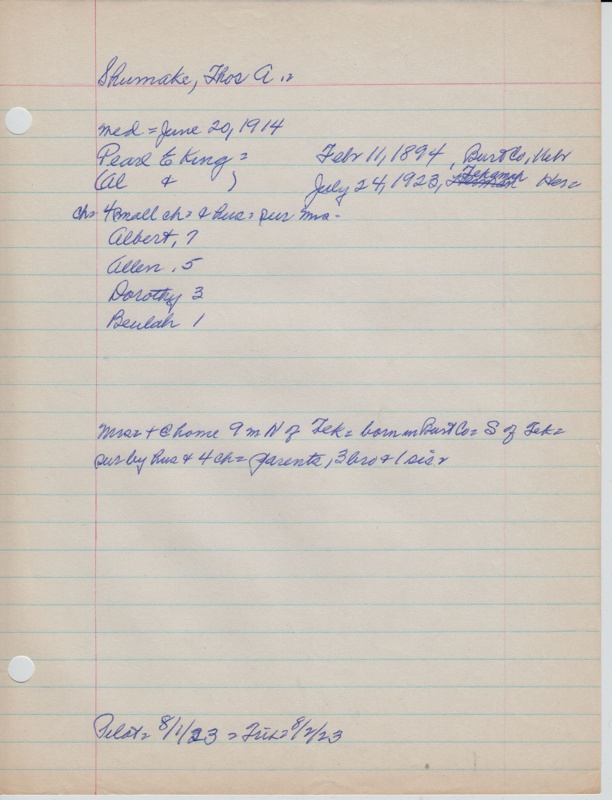 Shumake, Thos A.
med = June 20, 1914
Pearl E King = Febr 11, 1894, Burt Co, Nebr
(Al & ) July 24, 1923, Tekamah
ch = 4 small ch = & hus = sur Mrs -
Albert, 7
Allen, 5
Dorothy 3
Beulah 1
Mrs = + @ home 9 m N of Tek = born in Burt Co = S of Tek =
sur by hus & 4 ch = parents, 3 bro & 1 sis
Pilot = 8/1/23 = 8/2/23